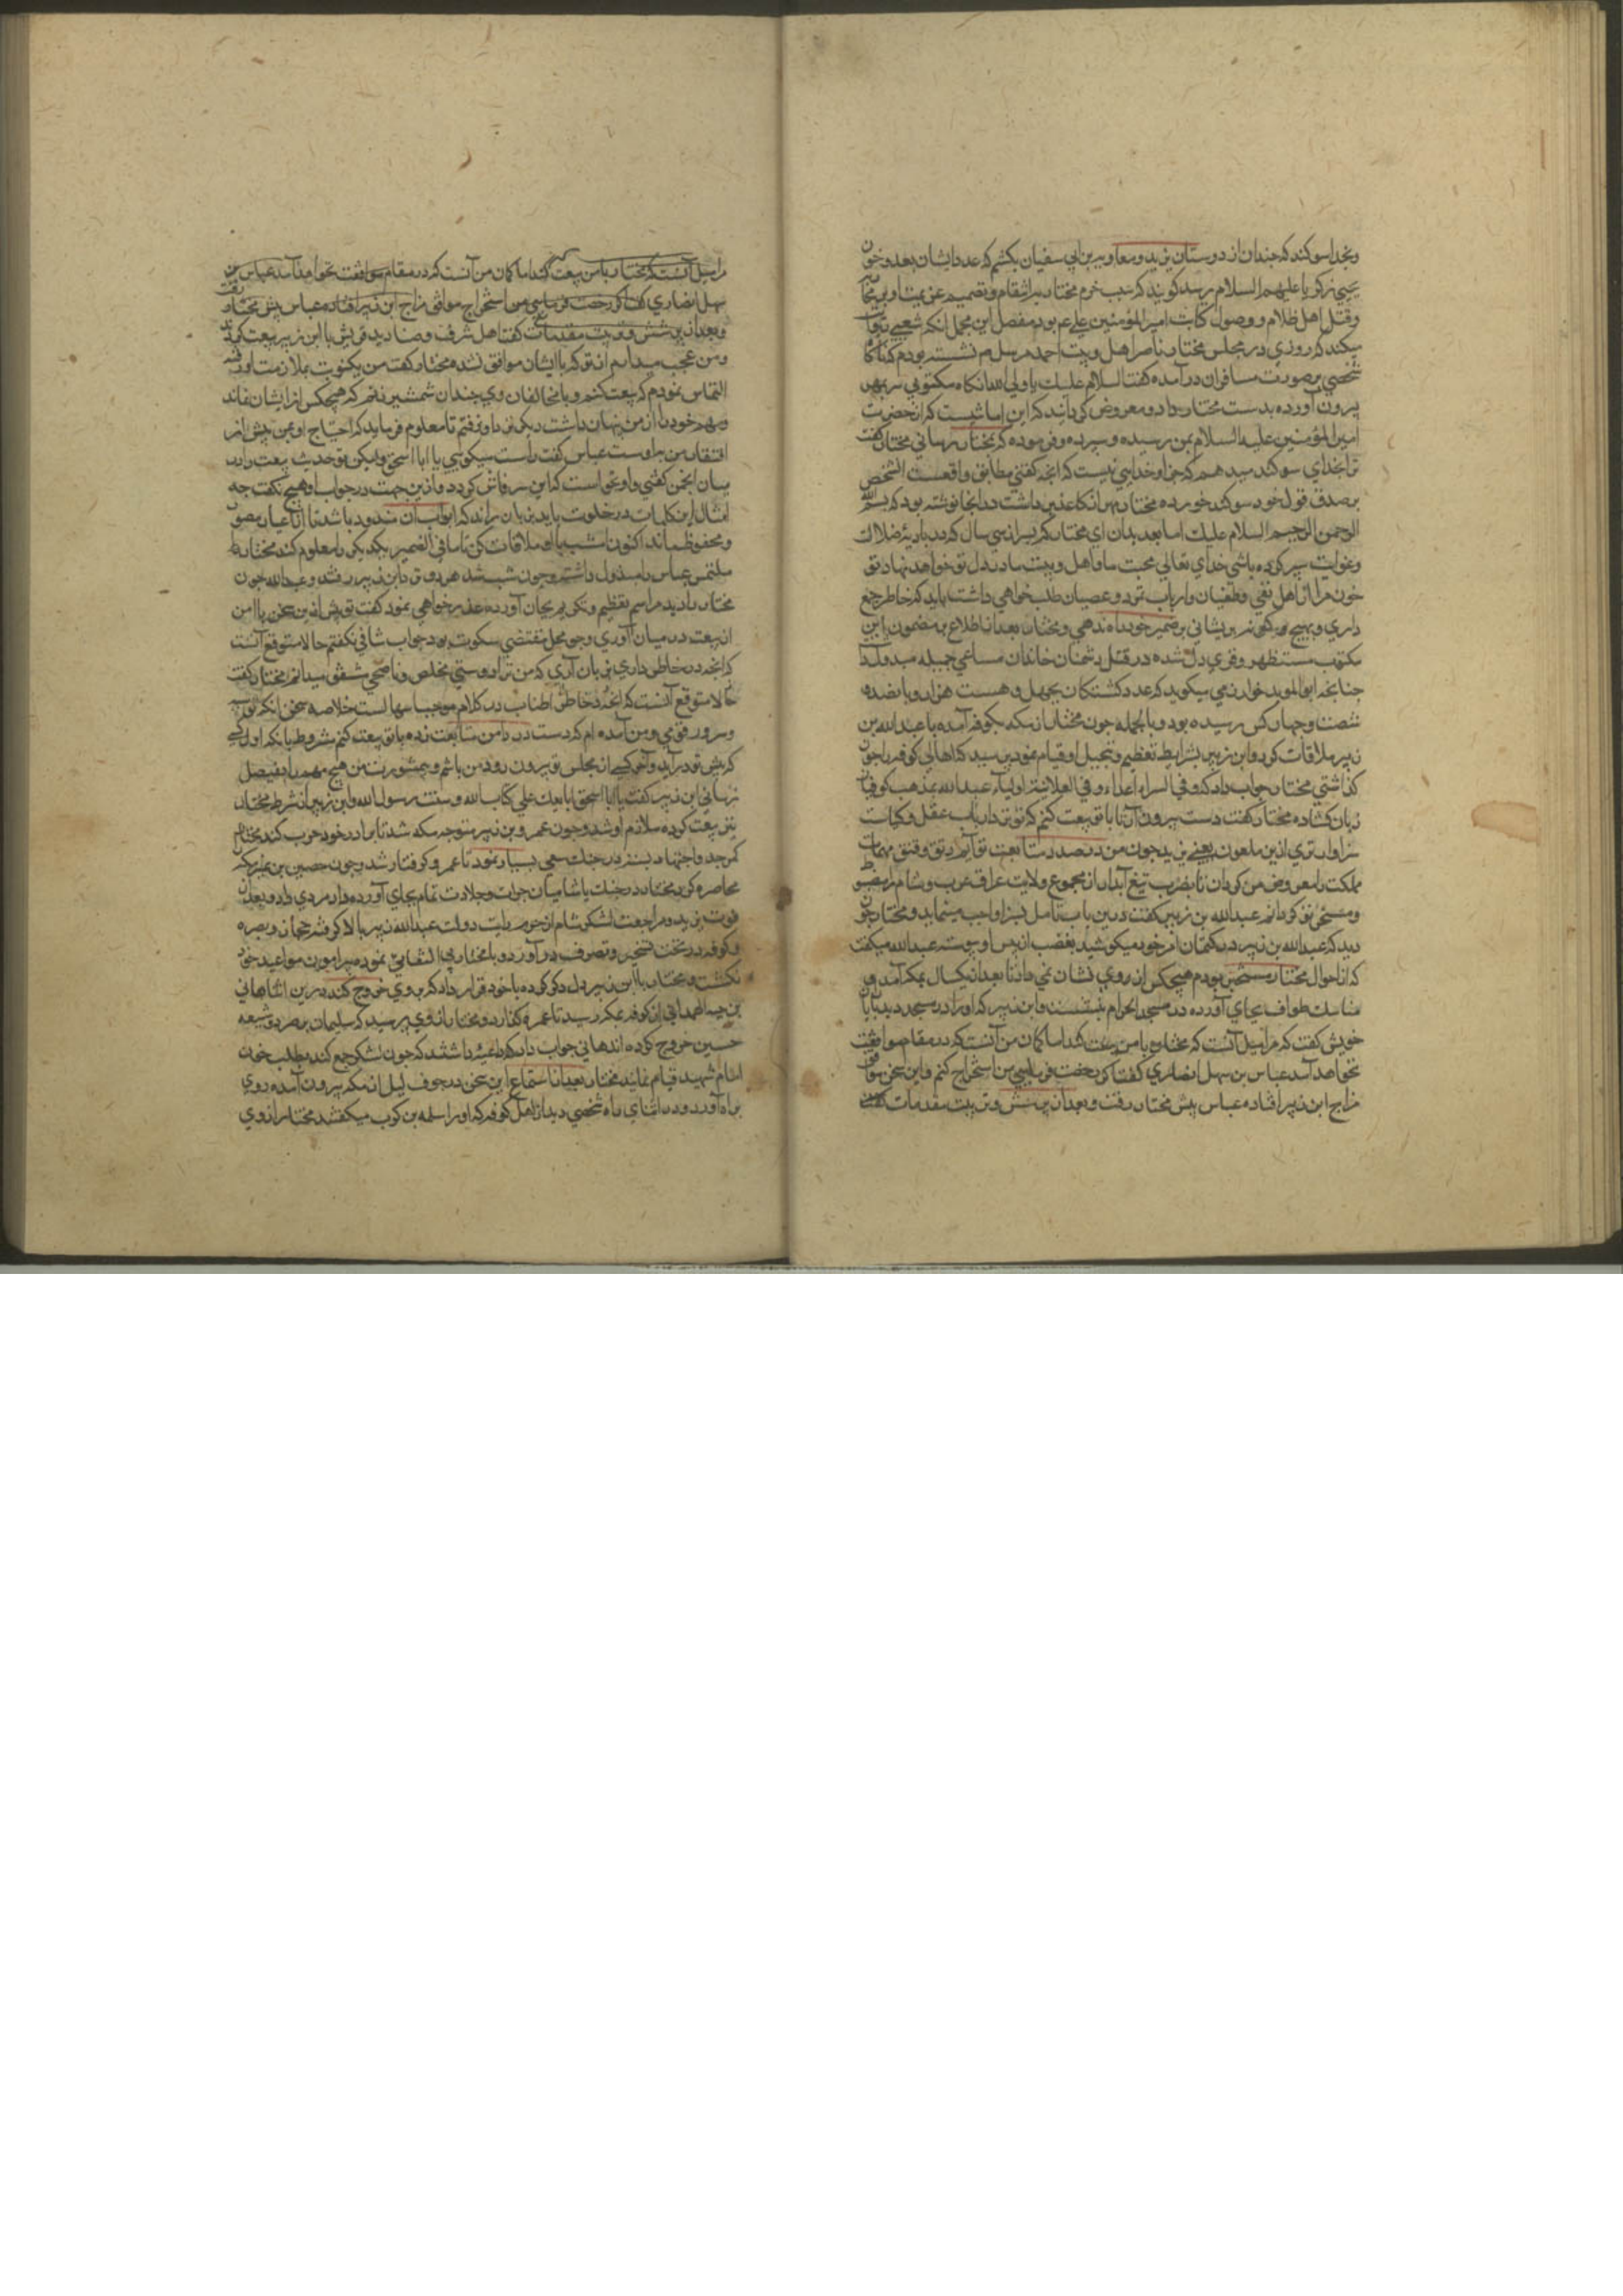 و بخدا سوکند که چندان از دوستان یزید و معاویه بن ابی سفیان بکشم که عدد ایشان بعدد خون
یحیی زکریا علیهم السلام رسد کویند که سبب جزم مختار بر انتقام و تصمیم عزیمت او بر محاربه
و قتل اهل ظلام و وصول کتابت امیر المؤمنین علی ع بود مفصل این مجمل انکه شعبی روایت
میکند که روزی در مجلس مختار ناصر اهل و بیت احمد مرسل ص نشسته بودم که ناکاه
شخصی بر صورت مسافران درآمده کفت السلام علیک یا ولی الله انکاه مکتوبی سر بمهر
بیرون آورده بدست مختار داد و معروض کردانید که این امانتیست که از حضرت
امیر المؤمنین علیه السلام بمن رسیده و سپرده و فرموده که بمختار رسانی مختار کفت
ترا بخدای سوکند میدهم که جز او خدایی نیست که انچه کفتی مطابق واقعست الشخص
بر صدق قول خود سوکند خورده مختار مهر از کاغذ برداشت در انجا نوشته بود که بسم الله
الرحمن الرحیم السلام علیک اما بعد بدان ای مختار که پس از سی سال که در بادیه ضلالت
و غوایت سیر کرده باشی خدای تعالی محبت ما و اهل و بیت ما در دل تو خواهد نهاد و تو
خون مرا از اهل بغی و طغیان و ارباب تمرد و عصیان طلب خواهی داشت باید که خاطر جمع
داری و بهیچ کونه پریشانی بر ضمیر خود راه ندهی و مختار بعد از اطلاع بر مضمون این
مکتوب مستظهر و قوی دل شده در قتل دشمنان خاندان مساعی جمیله مبذول داشت
چنانچه ابو الموید خوارزمی میکوید که عدد کشتکان بچهل و هشت هزار و پانصد و
شصت و چهار کس رسیده بود و بالجمله چون مختار بمکه بکوفه آمده با عبد الله بن
زبیر ملاقات کرد و ابن زبیر بشرایط تعظیم و تبجیل او قیام نمود پرسید که اهالی کوفه را چون
کذاشتی مختار جواب داد که و فی السراء اعداء و فی العلانیة اولیاء عبد الله بمذمت کوفیان
زبان کشاده مختار کفت دست بیرون آر تا با تو بیعت کنم که تو نزد ارباب عقل و کیاست
سزاوارتری ازین ملعون یعنی یزید چون من در صدد متابعت تو آیم رتق و فتق مهمات
مملکت را مفوض من کردان تا بضرب تیغ آبدار از مجموع ولایت عراق عرب و شام را مضبوط
و مسخر تو کردانم عبد الله بن زبیر کفت درین باب تامل نیز واجب مینماید و مختار چون
دید که عبد الله بن زبیر در کتمان امر خود میکوشید بغضب از پیش او عبد الله میکفت
که از احوال مختار مستخبر بودم هیچکس از وی نشان نمی داد تا بعد از یکسال بمکه آمد و
مناسک طواف بجای آورده در مسجد الحرام بنشست و ابن زبیر که او را در مسجد دید با یاران
خویش کفت که مرا میل آنست که مختار با من بیعت کند اما کمان من آنست که در مقام موافقت
نخواهد آمد عباس بن سهل انصاری کفت اکر رخصت فرمایی من استخراج کنم و این سخن موافق
مزاج ابن زبیر افتاده عباس پیش مختار رفت و بعد از پرسش و ترتیب مقدمات کفت
را میل آنست که مختار با من بیعت کند اما کمان من آنست که در مقام موافقت نخواهد آمد عباس بن
سهل انصاری کفت اکر رخصت فرمایی من استخراج موافق مزاج ابن زبیر افتاده عباس پیش مختار رفت
و بعد از پرسش و ترتیب مقدمات کفت اهل شرف و صنادید قریش با ابن زبیر بیعت کردند
و من عجب میدارم از تو که با ایشان موافق نشده مختار کفت من یکنوبت بملازمت او رفته
التماس نمودم که بیعت کنم و با مخالفان وی چندان شمشیر زنم که هیچکس از ایشان نماند
و مهم خود را از من پنهان داشت دیکر نزد او نرفتم تا معلوم فرماید که احتیاج او بمن بیش از
افتقار من باوست عباس کفت راست میکویی یا ابا اسحق و لیکن تو حدیث بیعت را در
میان انجمن کفتی و او نخواست که این سر فاش کردد و ازین جهت در جواب او هیچ نکفت چه
امثال این کلمات در خلوت باید بزبان راند که ابواب آن مسدود باشد تا از اغیار مصون
و محفوظ ماند اکنون امشب با او ملاقات کن تا ما فی الضمیر یکدیکر را معلوم کنید مختار
ملتمس عباس را مبذول داشته و چون شب شد هر دو نزد ابن زبیر رفتند و عبد الله چون
مختار را دید مراسم تعظیم و تکریم بجای آورده عذر خواهی نمود کفت تو پیش ازین سخن با من
از بیعت در میان آوردی و چون محل مقتضی سکوت بود جواب شافی نکفتم حالا متوقع آنست
که انچه در خاطر داری بزبان آری که من ترا دوستی مخلص و ناصحی مشفق میدانم مختار کفت
حالا متوقع آنست که انچه در خاطر اطناب در کلام موجب سهالست خلاصه سخن انکه تو
و سرور قومی و من آمده ام که دست در دامن متابعت زده با تو بیعت کنم مشروط بانکه اول کسی
که پیش تو درآید و آخر کسی از مجلس تو بیرون رود من باشم و بی مشورت من هیچ مهم را بفیصل
نرسانی ابن زبیر کفت یا ابا اسحق ابایعک علی کتاب الله و سنت رسول الله و ابن زبیر از شرط مختار
نیز بیعت کرده ملازم او شد و چون عمرو بن زبیر متوجه مکه شد تا با برادر خود حرب کند مختار
کمر جد و اجتهاد بسته در جنک سعی بسیار نمود تا عمرو کرفتار شد و چون حصین بن نمیر مکه
محاصره کرد مختار در جنک با شامیان جرات و جلادت تمام بجای آورده داد مردی داد و بعد از
فوت یزید و مراجعت لشکر شام از حرم رایت دولت عبد الله زبیر بالا کرفته حجاز و بصره
و کوفه در تحت تسخیر و تصرف درآورد و با مختار بی التفاتی نموده پیرامون مواعید خود
نکشت و مختار با ابن زبیر دل دکر کرده با خود قرار داد که بر وی خروج کند درین اثنا هانی
بن حیه الهمدانی از کوفه بمکه رسید تا عمره کذارد و مختار از وی پرسید که سلیمان بن صرد و شیعه
حسین خروج کرده اند هانی جواب داد که داعیه داشتند که چون لشکر جمع کنند بطلب خون
امام شهید قیام نمایند مختار بعد از استماع این سخن در جوف لیل از مکه بیرون آمده روی
براه آورد و در اثنای راه شخصی دید از اهل کوفه که او را سلمه بن کرب میکفتند مختار از وی